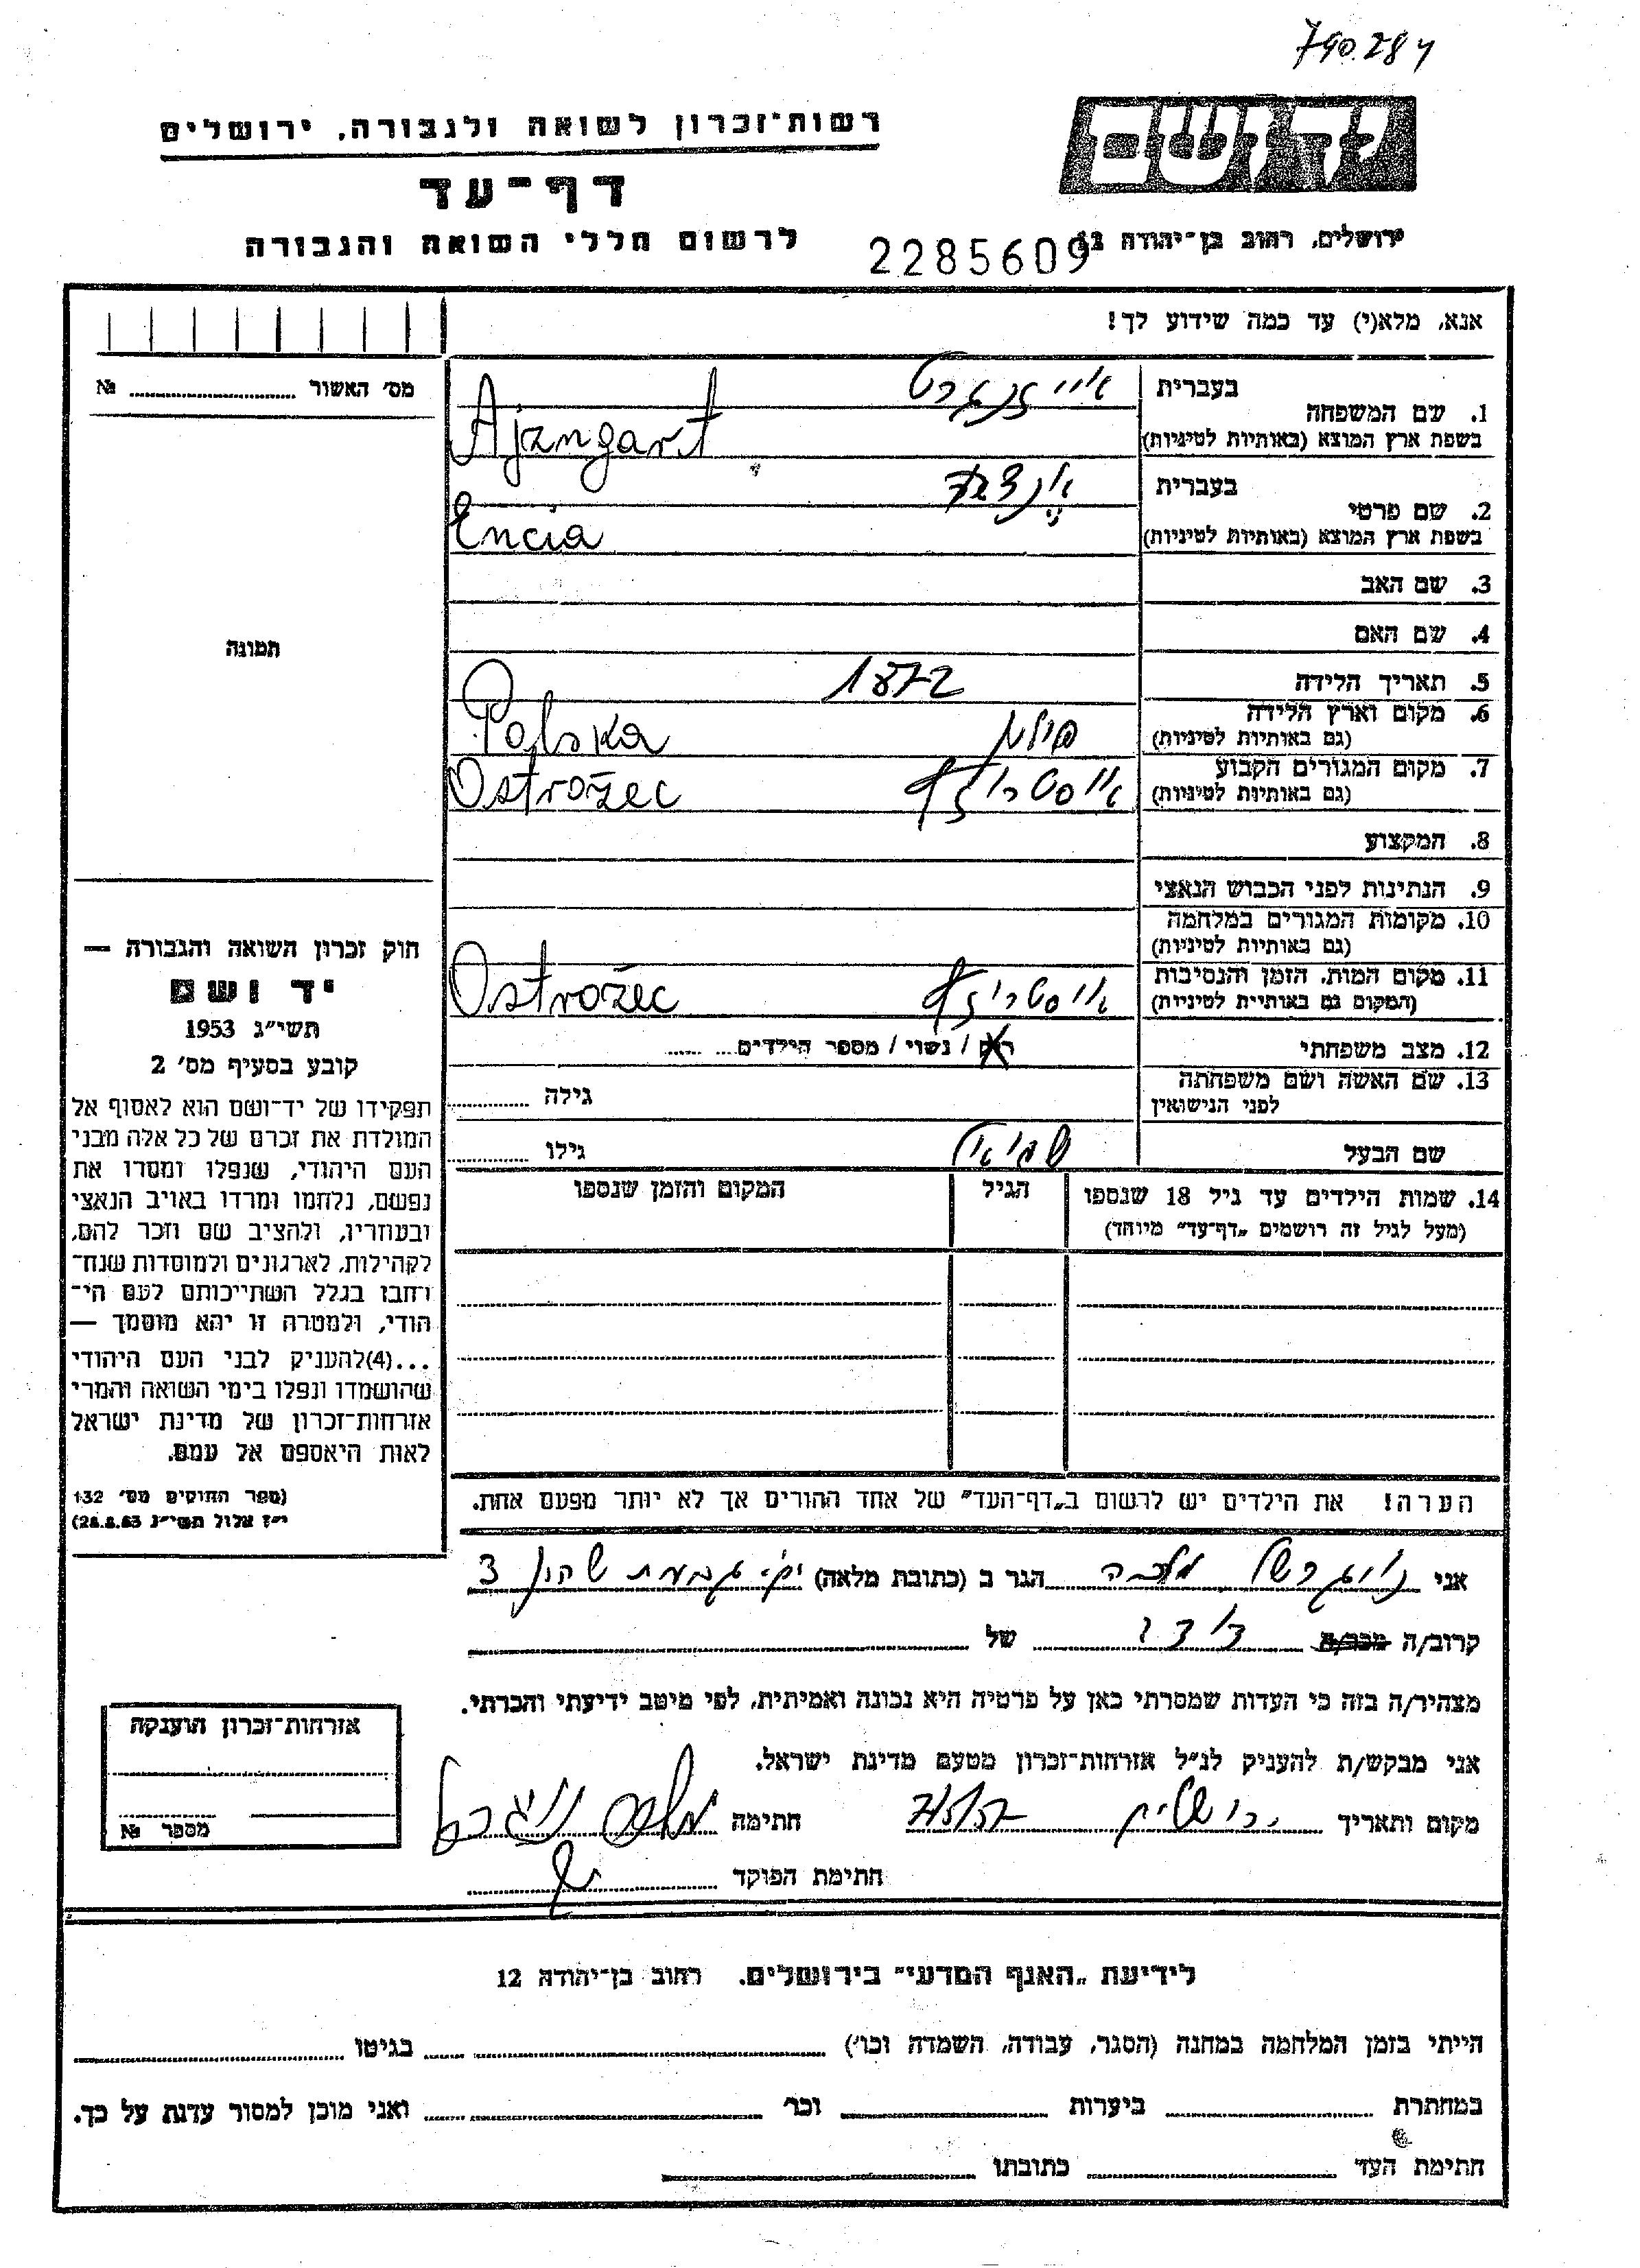 790.284
יד ושם
רשות־זכרון לשואה ולגבורה, ירושלים
דף־עד
לרשום חללי השואה והגבורה
ירושלים, רחוב בן־יהודה 12
2285609
אנא, מלא(י) עד כמה שידוע לך!
מס׳ האשור ........ №
תמונה
1. שם המשפחה
בעברית
אייזנגרט
בשפת ארץ המוצא (באותיות לטיניות)
Ajzngart
2. שם פרטי
בעברית
בשפת ארץ המוצא (באותיות לטיניות)
Encia
3. שם האב
4. שם האם
5. תאריך הלידה 1872
6. מקום וארץ הלידה
(גם באותיות לטיניות)
פולין Polska
7. מקום המגורים הקבוע
(גם באותיות לטיניות)
Ostrožec
8. המקצוע
9. הנתינות לפני הכבוש הנאצי
10. מקומות המגורים במלחמה
(גם באותיות לטיניות)
11. מקום המות, הזמן והנסיבות
(המקום גם באותיית לטיניות)
Ostrožec
12. מצב משפחתי רוק / נשוי / מספר הילדים
13. שם האשה ושם משפחתה
לפני הנישואין
גילה
שם הבעל
גילו
14. שמות הילדים עד גיל 18 שנספו
(מעל לגיל זה רושמים „דף־עד" מיוחד)
הגיל
המקום והזמן שנספו
הערה! את הילדים יש לרשום ב„דף־העד" של אחד ההורים אך לא יותר מפעם אחת.
חוק זכרון השואה והגבורה —
יד ושם
תשי״ג 1953
קובע בסעיף מס׳ 2
תפקידו של יד־ושם הוא לאסוף אל
המולדת את זכרם של כל אלה מבני
העם היהודי, שנפלו ומסרו את
נפשם, נלחמו ומרדו באויב הנאצי
ובעוזריו, ולהציב שם וזכר להם,
לקהילות, לארגונים ולמוסדות שנח־
רבו בגלל השתייכותם לעם הי־
הודי, ולמטרה זו יהא מוסמך —
...(4)להעניק לבני העם היהודי
שהושמדו ונפלו בימי השואה והמרי
אזרחות־זכרון של מדינת ישראל
לאות היאספם אל עמם.
(ספר החוקים מס׳ 132
י״ז אלול תשי״ג 28.8.53)
אני מלכה הגר ב (כתובת מלאה) 3
קרוב/ה מכר/ה של
מצהיר/ה בזה כי העדות שמסרתי כאן על פרטיה היא נכונה ואמיתית, לפי מיטב ידיעתי והכרתי.
אני מבקש/ת להעניק לנ״ל אזרחות־זכרון מטעם מדינת ישראל.
מקום ותאריך ירושלים חתימה מלכה
חתימת הפוקד
אזרחות־זכרון הוענקה
מספר №
לידיעת „האגף המדעי" בירושלים, רחוב בן־יהודה 12
הייתי בזמן המלחמה במחנה (הסגר, עבודה, השמדה וכו׳) בגיטו
במחתרת ביערות וכו׳ ואני מוכן למסור עדות על כך.
חתימת העד כתובתו